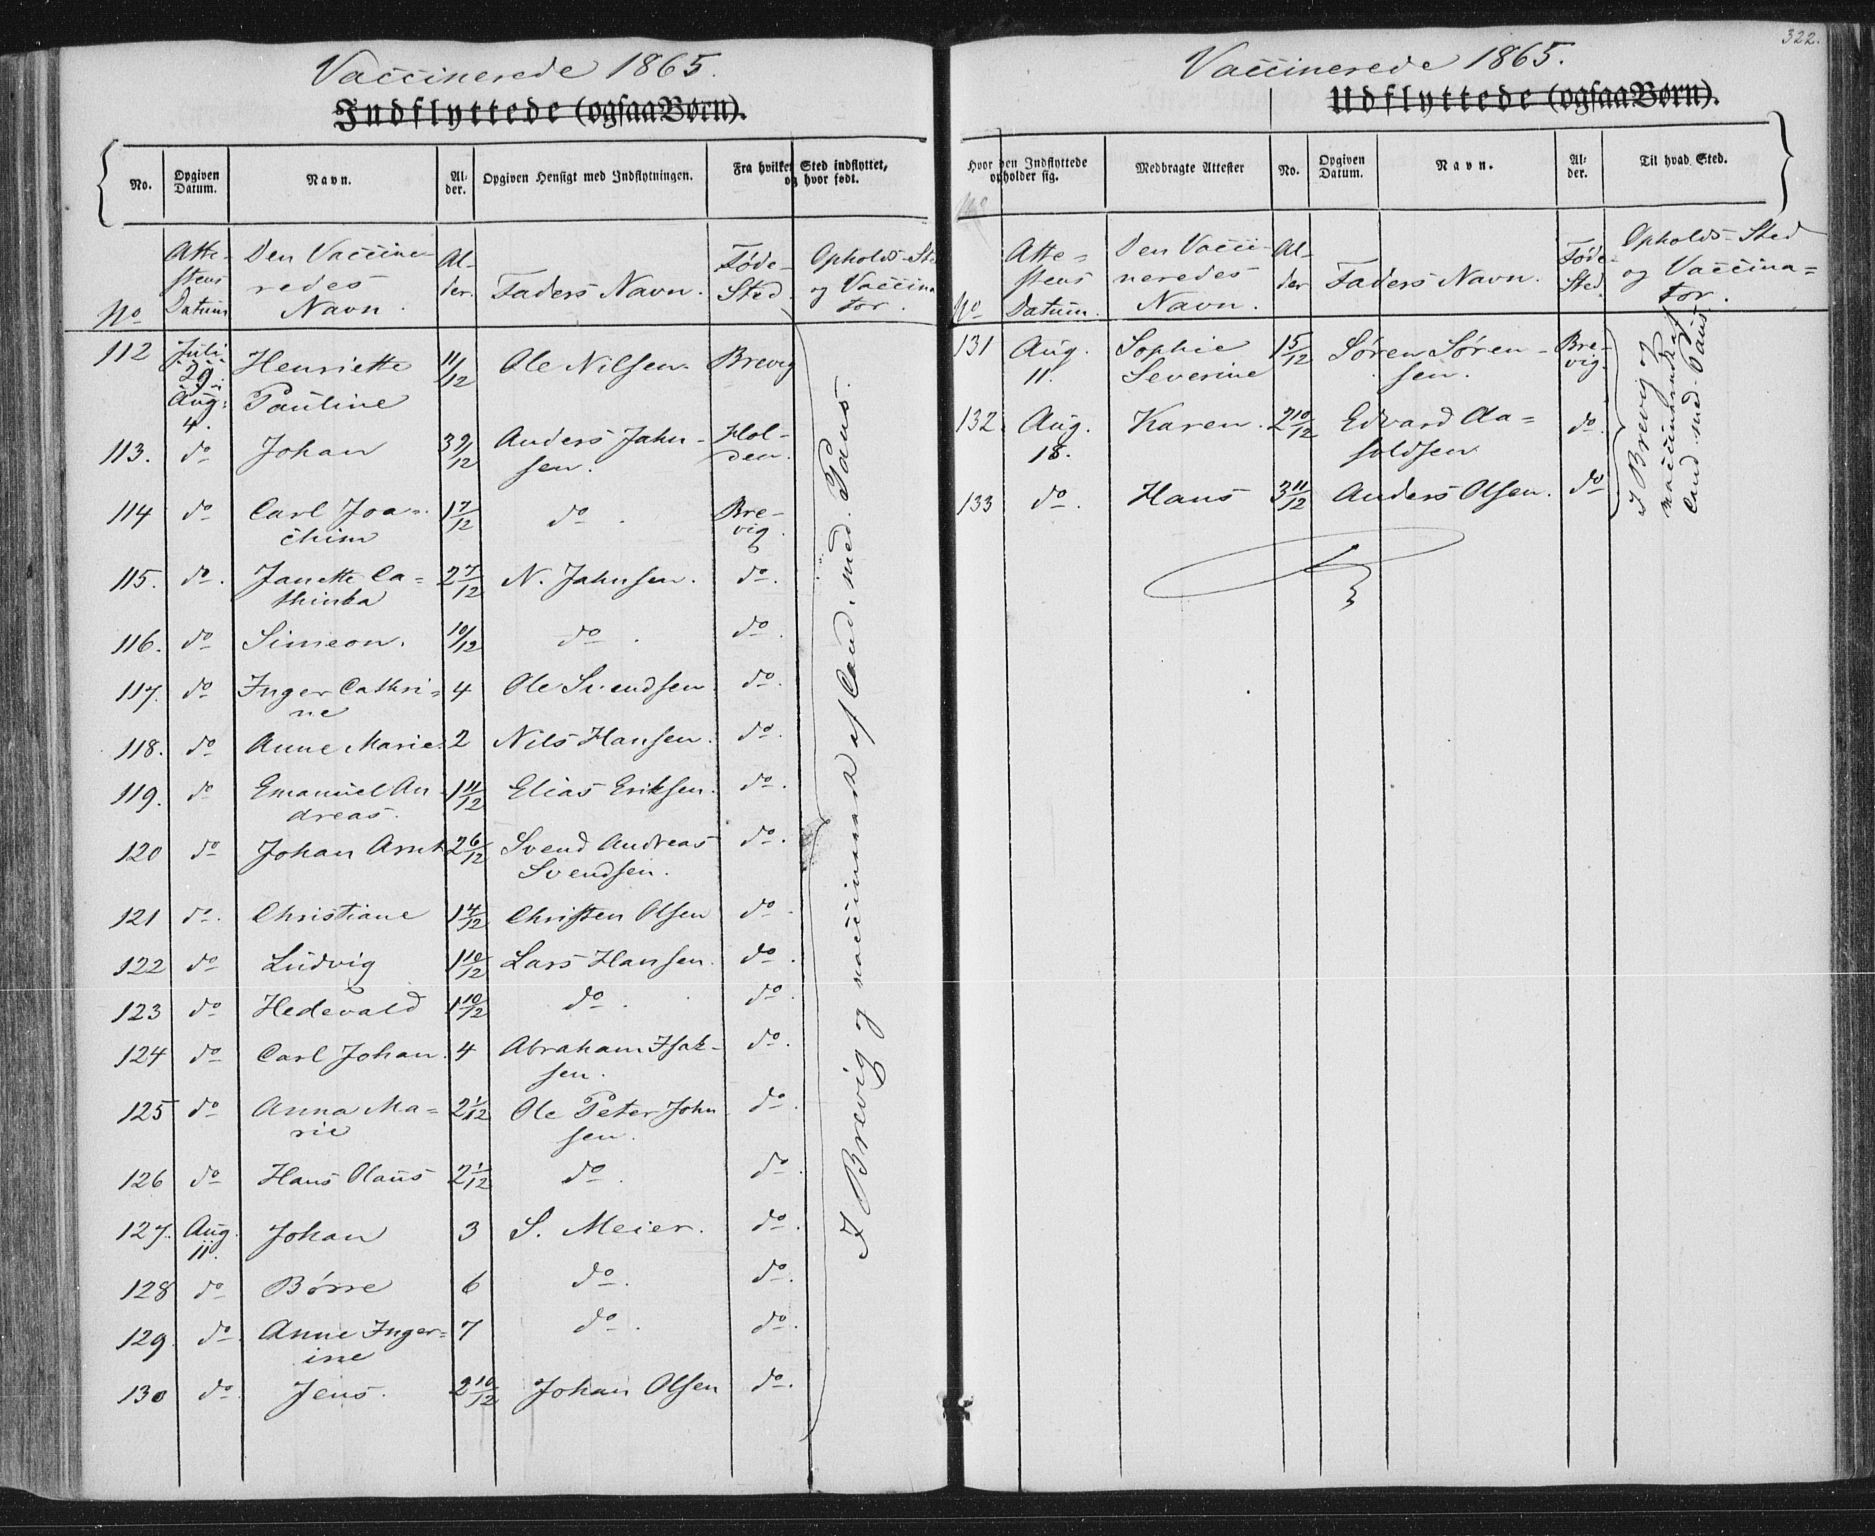 Vaccinerede 1865.
Indflyttede (ogsaa Børn).
No. Opgiven Datum. Navn. Alder. Opgiven Hensigt med Indflytningen. Fra hvilket Sted indflyttet, og hvor født.
No Attestens Datum Den Vaccineredes Navn. Alder. Faders Navn. Føde-Sted. Opholds-Sted og Vaccinator.
112 Juli 29. Aug. 4. Henriette Pauline 11/12 Ole Nilsen. Brevig
113. do Johan 3 9/12 Anders Jahnsen. Holden.
114 do Carl Joachim 1 7/12 do. Brevig.
115. do. Janette Cathinka 2 7/12 N. Jahnsen. do.
116. do Simeon. 10/12 do. do.
117. do Inger Cathrine 4 Ole Svendsen. do.
118. do Anne Marie. 2 Nils Hansen. do.
119. do Emanuel Andreas. 1 11/12 Elias Eriksen. do.
120 do Johan Arnt 2 6/12 Svend Andreas Svendsen. do.
121 do. Christiane 1 4/12 Christen Olsen do.
122 do Ludvig 1 10/12 Lars Hansen. do.
123 do Hedevald 1 10/12 do. do.
124 do Carl Johan. 4 Abraham Isaksen. do.
125 do Anna Marie 2 1/12 Ole Peter Johnsen. do.
126 do Hans Olaus 2 1/12 do. do.
127. Aug. 11. Johan 3 S. Meier. do.
128 do Børre 6 do. do.
129. do Anne Ingerine 7 do. do.
130 do. Jens. 2 10/12 Johan Olsen do.
I Brevig og vaccinerede af Cand. med. Paus.
322.
Vaccinerede 1865.
Udflyttede (ogsaa Børn).
Hvor den Indflyttede opholder sig. Medbragte Attester No. Opgiven Datum. Navn. Alder. Til hvad Sted.
No Attestens Datum. Den Vaccineredes Navn. Alder Faders Navn. Føde-Sted. Opholds-Sted og Vaccinator.
131 Aug. 11. Sophie Severine 15/12 Søren Sørensen. Brevig.
132. Aug. 18. Karen. 2 10/12 Edvard Aasoldsen do.
133 do. Hans 3 11/12 Anders Olsen. do
I Brevig og
Cand. med. Paus.